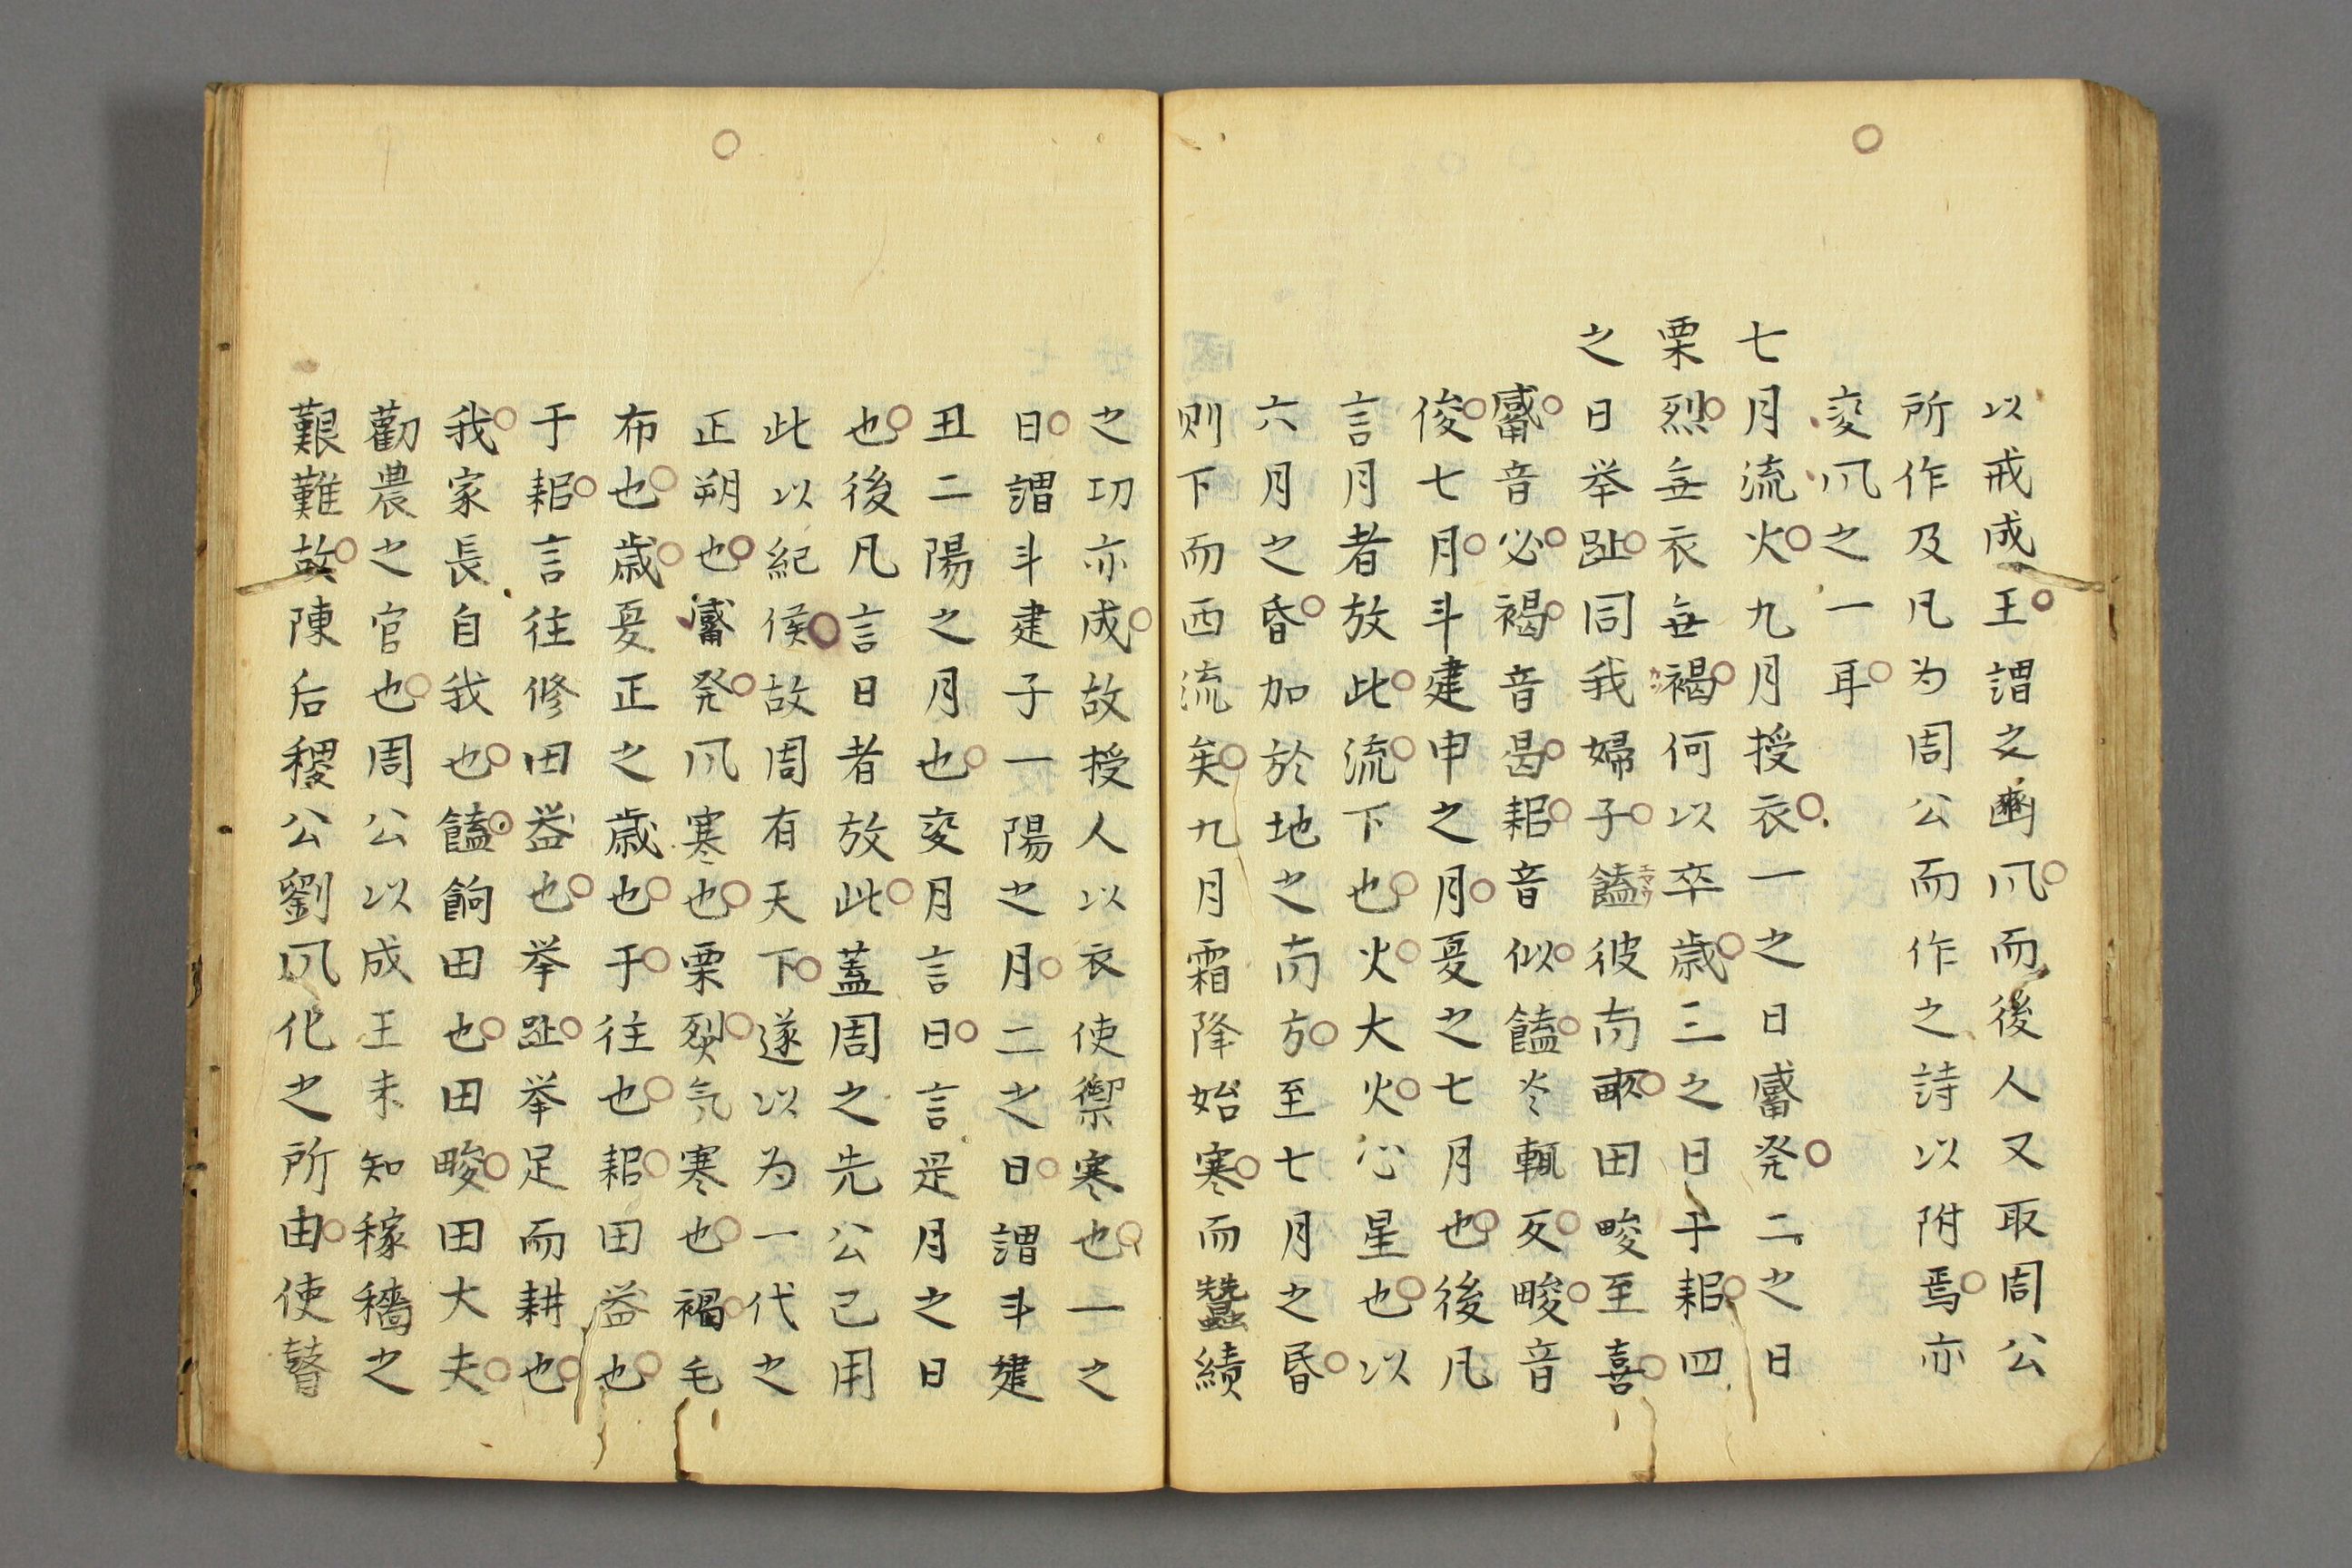 以戒成王謂之豳凨而後人又取周公
所作及凡为周公而作之詩以附焉亦
变凨之一耳
七月流火九月授衣一之日觱発二之日
栗烈無衣無褐何以卒歳三之日于耜四
之日举趾同我婦子饁彼南畝田畯至喜
觱音必褐音曷耜音似饁炎輒反畯音
俊七月斗建申之月夏之七月也後凡
言月者放此流下也火大火心星也以
六月之昏加於地之南方至七月之昏
则下而西流矣九月霜降始寒而蠶績
之功亦成故授人以衣使禦寒也一之
日謂斗建子一陽之月二之日謂斗建
丑二陽之月也变月言日言是月之日
也後凡言日者放此蓋周之先公已用
此以紀侯故周有天下遂以为一代之
正朔也觱発凨寒也栗烈気寒也褐毛
布也歳夏正之歳也于往也耜田噐也
于耜言往修田噐也举趾举足而耕也
我家長自我也饁餉田也田畯田大夫
勸農之官也周公以成王未知稼穡之
艱難故陳后稷公劉凨化之所由使瞽